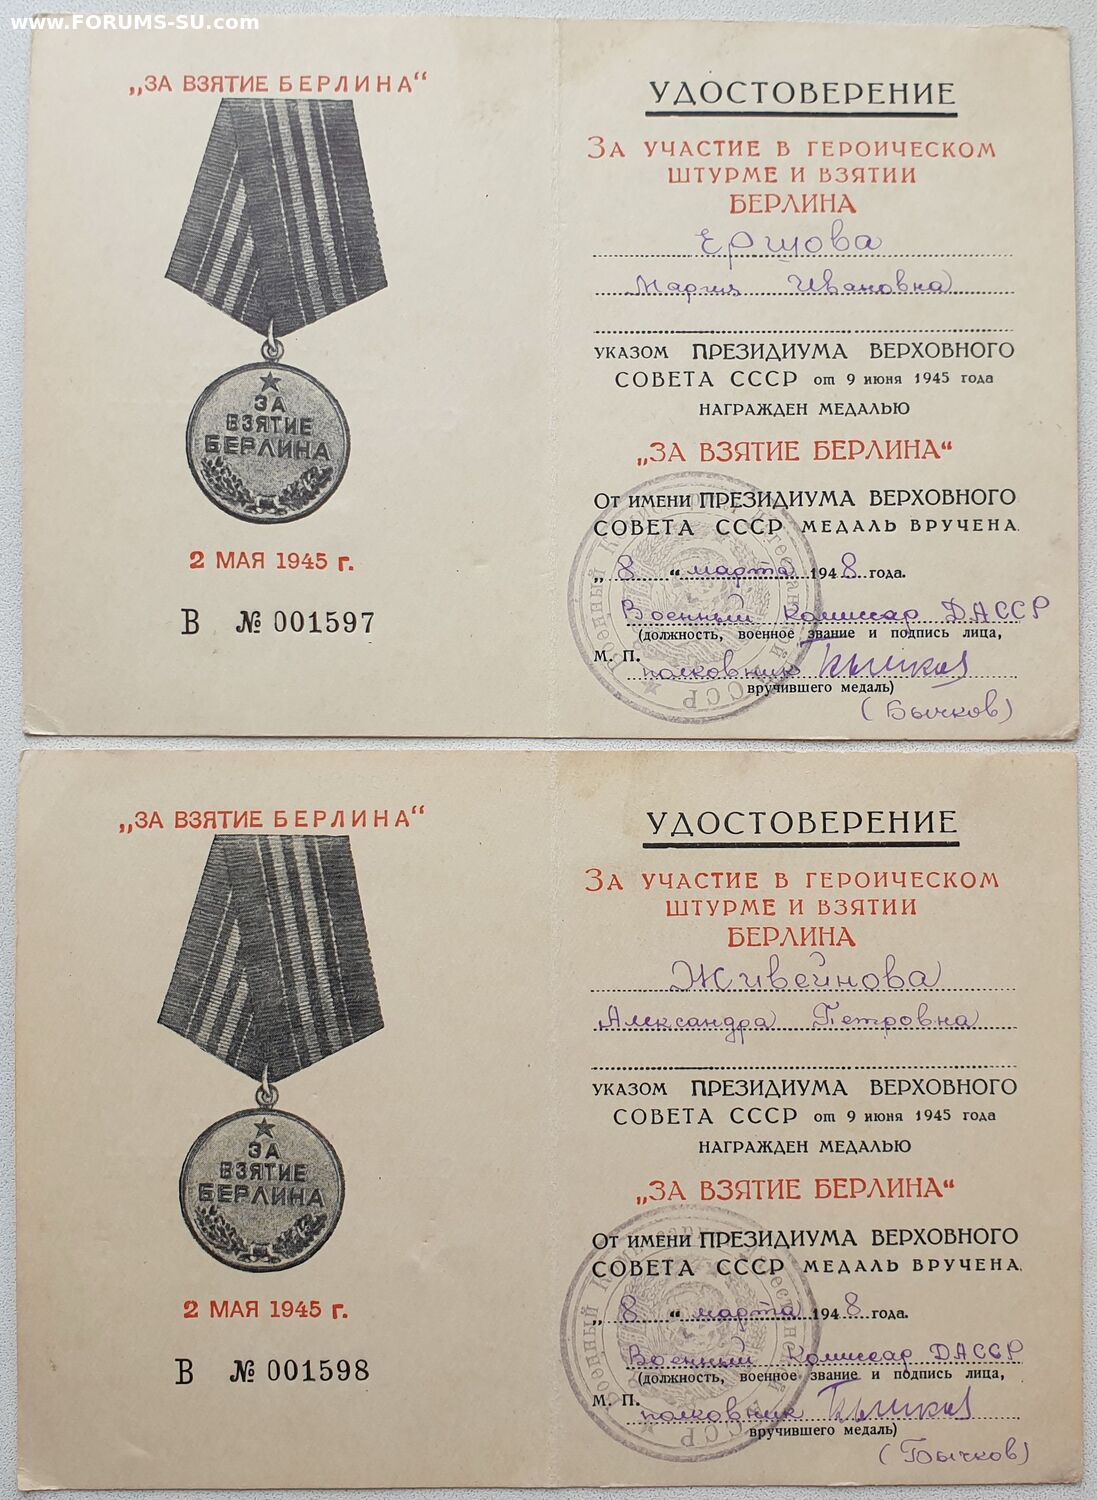 www.FORUMS-SU.com
„ЗА ВЗЯТИЕ БЕРЛИНА“
ЗА
ВЗЯТИЕ
БЕРЛИНА
2 МАЯ 1945 г.
В № 001597
УДОСТОВЕРЕНИЕ
ЗА УЧАСТИЕ В ГЕРОИЧЕСКОМ
ШТУРМЕ И ВЗЯТИИ
БЕРЛИНА
Ершова
Мария Ивановна
УКАЗОМ ПРЕЗИДИУМА ВЕРХОВНОГО
СОВЕТА СССР от 9 июня 1945 года
НАГРАЖДЕН МЕДАЛЬЮ
„ЗА ВЗЯТИЕ БЕРЛИНА“
ОТ ИМЕНИ ПРЕЗИДИУМА ВЕРХОВНОГО
СОВЕТА СССР МЕДАЛЬ ВРУЧЕНА
„8“ марта 1948 года.
Военный Комиссар ДАССР
(должность, военное звание и подпись лица,
М. П. полковник Бычков
вручившего медаль)
(Бычков)
„ЗА ВЗЯТИЕ БЕРЛИНА“
ЗА
ВЗЯТИЕ
БЕРЛИНА
2 МАЯ 1945 г.
В № 001598
УДОСТОВЕРЕНИЕ
ЗА УЧАСТИЕ В ГЕРОИЧЕСКОМ
ШТУРМЕ И ВЗЯТИИ
БЕРЛИНА
Живейнова
Александра Петровна
УКАЗОМ ПРЕЗИДИУМА ВЕРХОВНОГО
СОВЕТА СССР от 9 июня 1945 года
НАГРАЖДЕН МЕДАЛЬЮ
„ЗА ВЗЯТИЕ БЕРЛИНА“
ОТ ИМЕНИ ПРЕЗИДИУМА ВЕРХОВНОГО
СОВЕТА СССР МЕДАЛЬ ВРУЧЕНА
„8“ марта 1948 года.
Военный Комиссар ДАССР
(должность, военное звание и подпись лица,
М. П. полковник Бычков
вручившего медаль)
(Бычков)